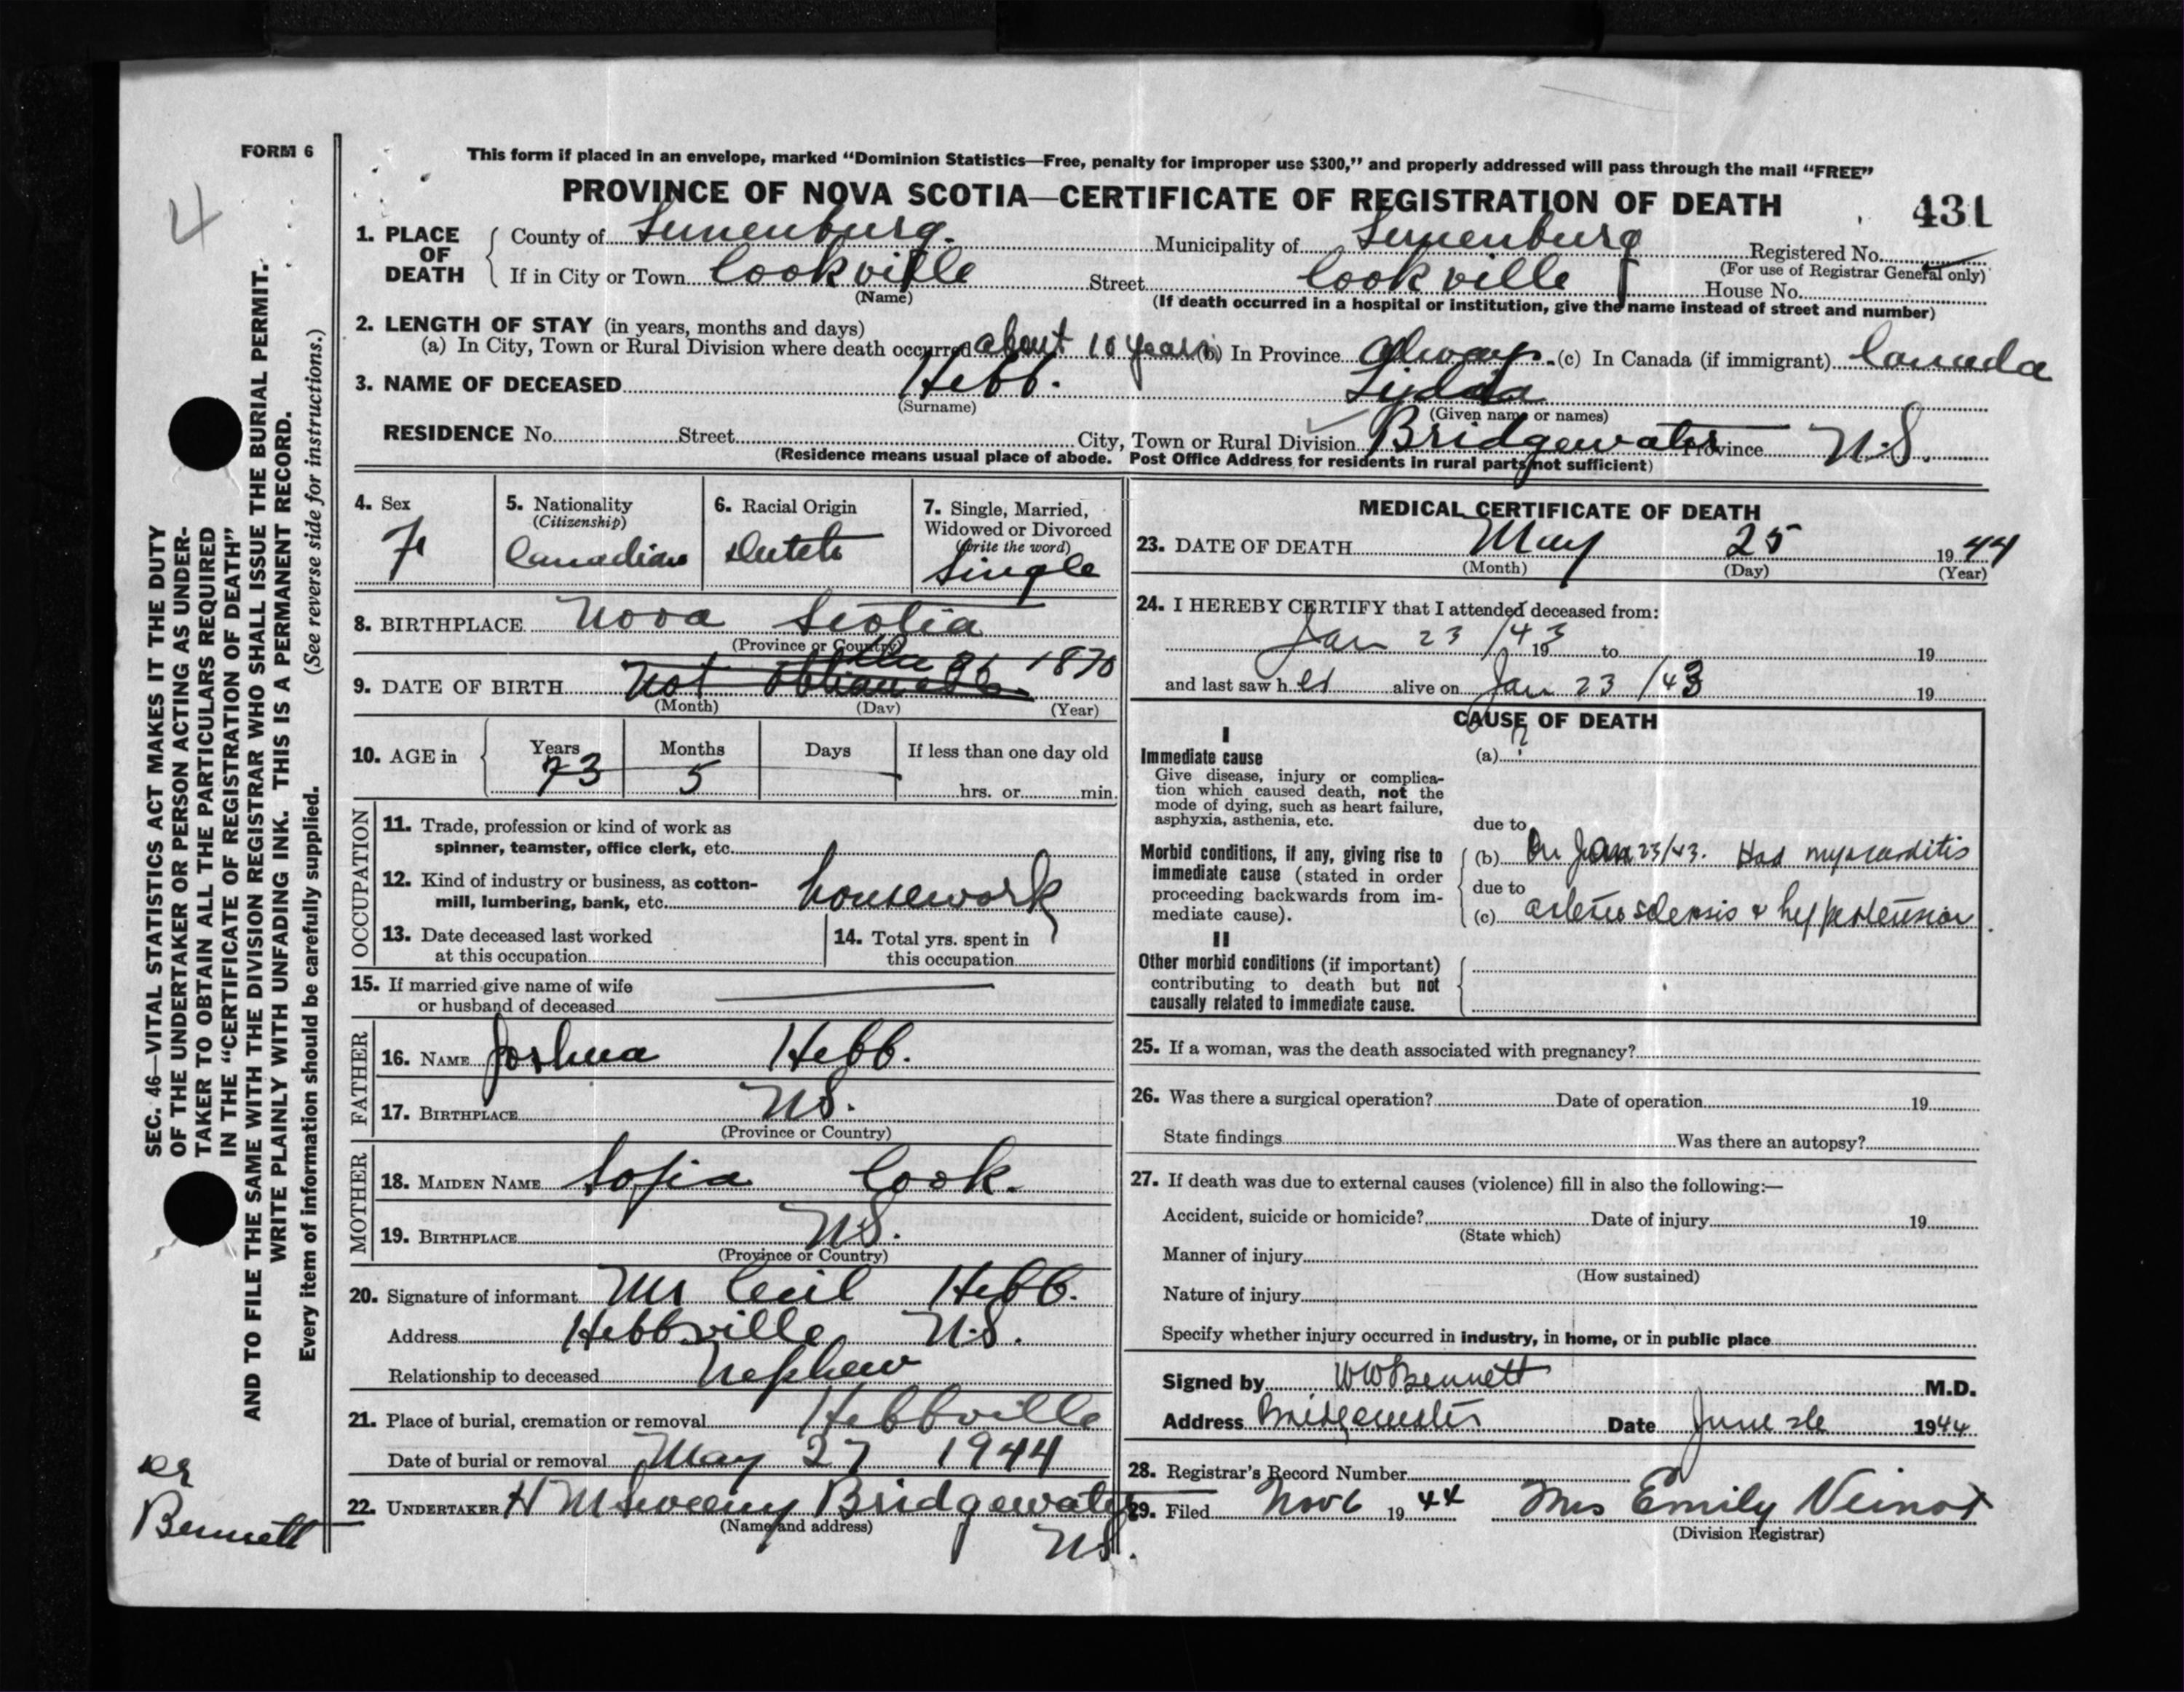 FORM 6
4
This form if placed in an envelope, marked “Dominion Statistics—Free, penalty for improper use $300,” and properly addressed will pass through the mail “FREE”
PROVINCE OF NOVA SCOTIA—CERTIFICATE OF REGISTRATION OF DEATH
431
1. PLACE OF DEATH
County of Lunenburg. Municipality of Lunenburg Registered No.
(For use of Registrar General only)
If in City or Town Cookville Street Cookville House No.
(Name) (If death occurred in a hospital or institution, give the name instead of street and number)
2. LENGTH OF STAY (in years, months and days)
(a) In City, Town or Rural Division where death occurred about 10 years (b) In Province Always (c) In Canada (if immigrant) Canada
3. NAME OF DECEASED Hebb. Lydda
(Surname) (Given name or names)
RESIDENCE No. Street City, Town or Rural Division Bridgewater Province N.S.
(Residence means usual place of abode. Post Office Address for residents in rural parts not sufficient)
4. Sex
F
5. Nationality
(Citizenship)
Canadian
6. Racial Origin
Dutch
7. Single, Married,
Widowed or Divorced
(Write the word)
Single
8. BIRTHPLACE Nova Scotia
(Province or Country)
9. DATE OF BIRTH Not 1870
(Month) (Day) (Year)
10. AGE in Years Months Days If less than one day old
73 5 hrs. or min.
OCCUPATION
11. Trade, profession or kind of work as
spinner, teamster, office clerk, etc.
12. Kind of industry or business, as cotton-
mill, lumbering, bank, etc. housework
13. Date deceased last worked
at this occupation
14. Total yrs. spent in
this occupation
15. If married give name of wife
or husband of deceased
FATHER
16. NAME Joshua Hebb.
17. BIRTHPLACE N.S.
(Province or Country)
MOTHER
18. MAIDEN NAME Sofia Cook.
19. BIRTHPLACE N.S.
(Province or Country)
20. Signature of informant Mr Cecil Hebb.
Address Hebbville N.S.
Relationship to deceased Nephew
21. Place of burial, cremation or removal Hebbville
Date of burial or removal May 27 1944
22. UNDERTAKER H M Sweeny Bridgewater
(Name and address)
N.S.
MEDICAL CERTIFICATE OF DEATH
23. DATE OF DEATH May 25 1944
(Month) (Day) (Year)
24. I HEREBY CERTIFY that I attended deceased from:
Jan 23 /43 19 to 19
and last saw her alive on Jan 23 /43 19
CAUSE OF DEATH
I
Immediate cause
Give disease, injury or complica-
tion which caused death, not the
mode of dying, such as heart failure,
asphyxia, asthenia, etc.
(a) ?
due to
Morbid conditions, if any, giving rise to
immediate cause (stated in order
proceeding backwards from im-
mediate cause).
(b) On Jan 23/43. Had myocarditis
due to
(c) arterio sclerosis & hypertension
II
Other morbid conditions (if important)
contributing to death but not
causally related to immediate cause.
25. If a woman, was the death associated with pregnancy?
26. Was there a surgical operation? Date of operation 19
State findings Was there an autopsy?
27. If death was due to external causes (violence) fill in also the following:—
Accident, suicide or homicide? Date of injury 19
(State which)
Manner of injury
(How sustained)
Nature of injury
Specify whether injury occurred in industry, in home, or in public place
Signed by WW Bennett M.D.
Address Bridgewater Date June 26 1944
28. Registrar's Record Number
29. Filed Nov 6 1944 Mrs Emily Veinot
(Division Registrar)
SEC. 46—VITAL STATISTICS ACT MAKES IT THE DUTY
OF THE UNDERTAKER OR PERSON ACTING AS UNDER-
TAKER TO OBTAIN ALL THE PARTICULARS REQUIRED
IN THE “CERTIFICATE OF REGISTRATION OF DEATH”
AND TO FILE THE SAME WITH THE DIVISION REGISTRAR WHO SHALL ISSUE THE BURIAL PERMIT.
WRITE PLAINLY WITH UNFADING INK. THIS IS A PERMANENT RECORD.
Every item of information should be carefully supplied. (See reverse side for instructions.)
Dr
Bennett